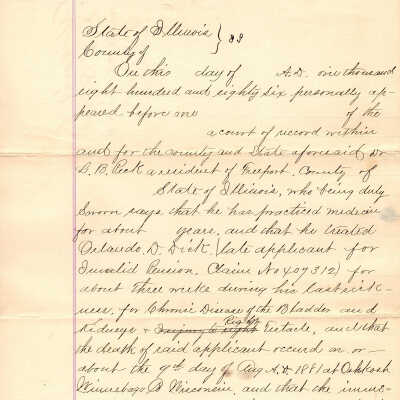 State of Illinois } SS
County of
On this day of A.D. one thousand
eight hundred and eighty six personally ap-
peared before me of the
a court of record within
and for the county and State aforesaid Dr
L. B. Peck a resident of Freeport. County of
State of Illinois, who being duly
Sworn says that he has practiced medicine
for about years, and that he treated
Orlando. D. Dick. (late applicant for
Invalid Pension. Claim No 407312) for
about three weeks during his last sick-
ness, for Chronic Disease of the Bladder and
Kidneys & Injury to right Right Testacle, and that
the death of said applicant occurd on or
about the 9th day of Aug A.D. 1881 at Oshkosh
Winnebago Co Wisconsin, and that the imme-